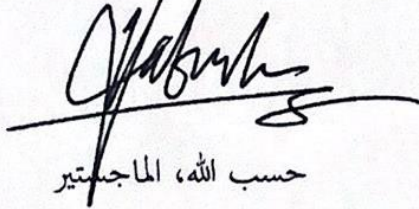 حسب الله، الماجستير